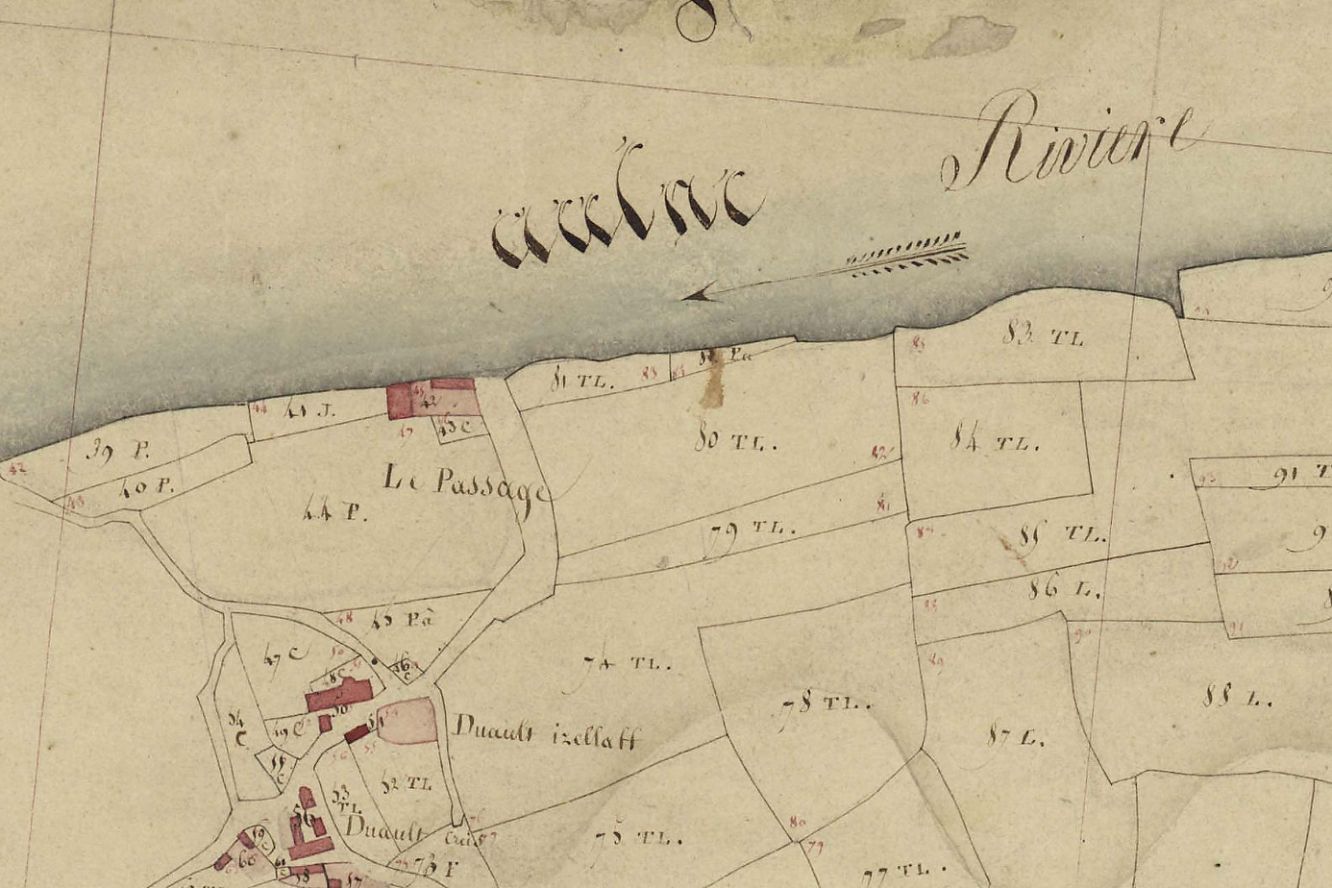 Riviere
aulne
83 TL
81 TL.
41 J.
42
43 C
39 P.
40 P.
80 TL.
84 TL.
Le Passage
44 P.
91 T
79 TL.
85 TL.
86 L.
45 Pâ
47 C
46 C
74 TL.
48 C
78 TL.
88 L.
50
54 C
49 C
51
Duault izellaff
87 L.
55 C
52 TL
53 TL
56
Duault
75 TL.
60
73 P
77 TL.
58
57